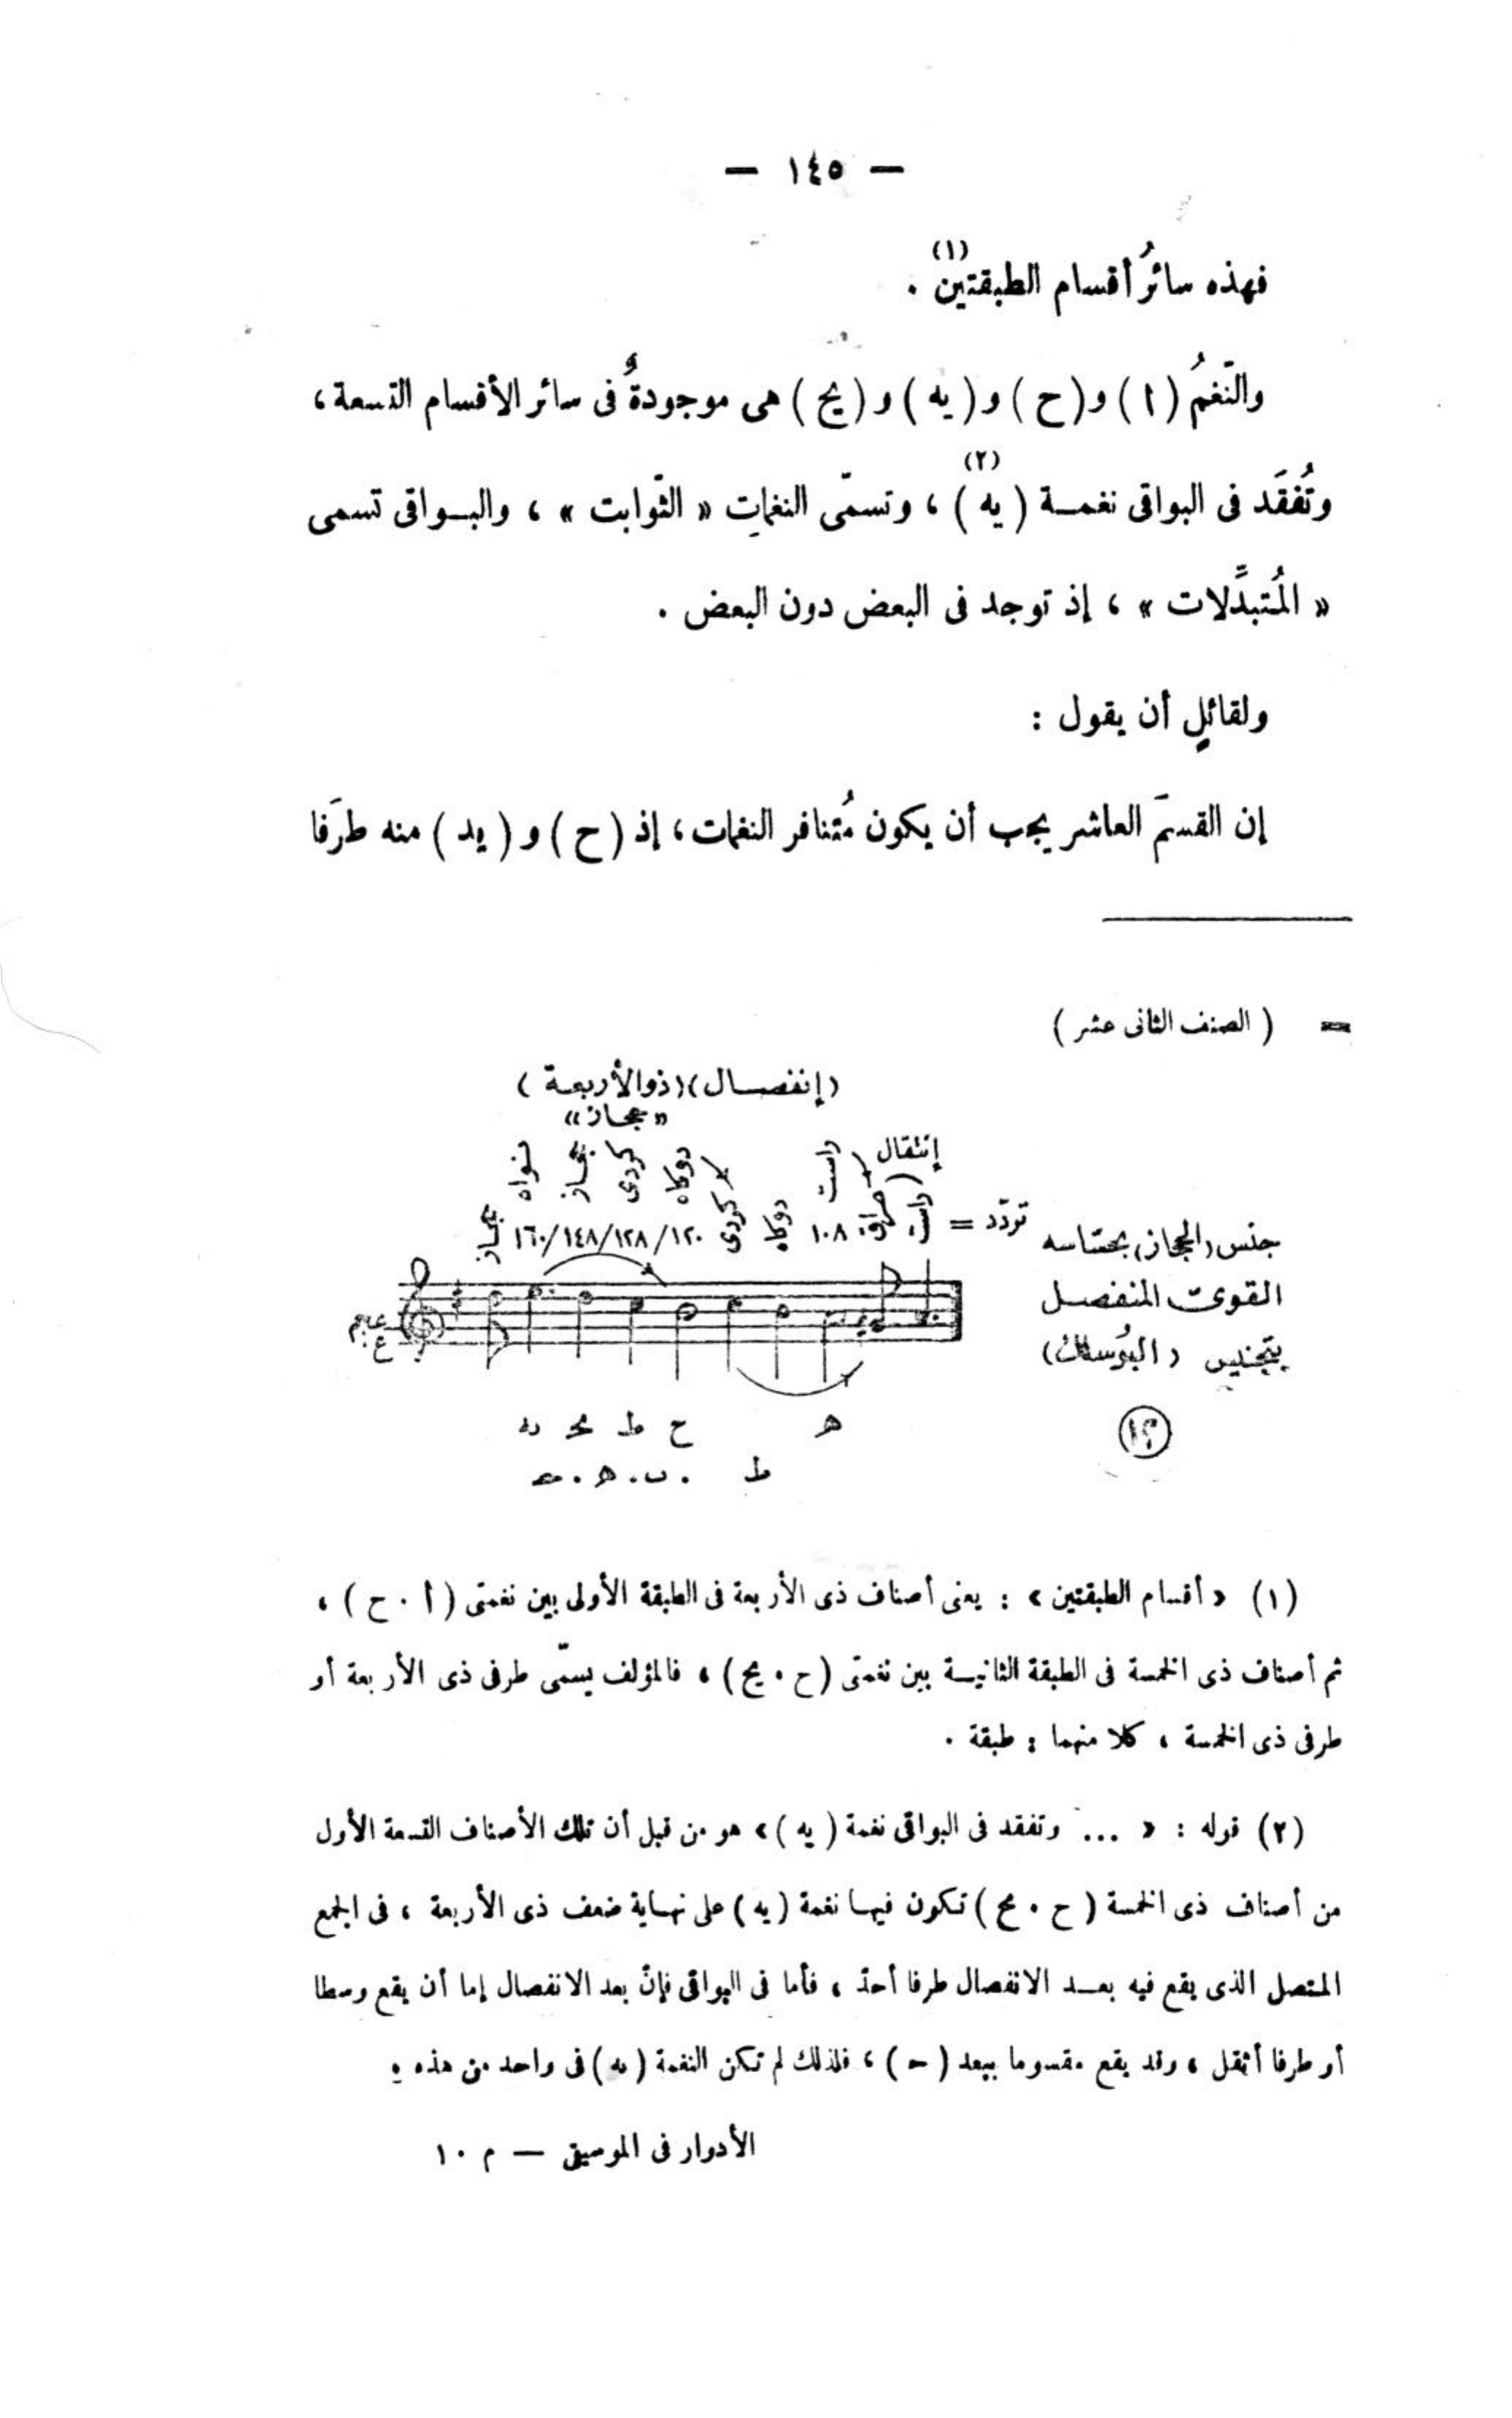 — ١٤٥ —
فهذه سائرُ أقسام الطبقتين (١) .
والنّغمُ ( ا ) و ( ح ) و ( يه ) و ( يح ) هى موجودةٌ فى سائر الأقسام التسعة ،
وتُفقَد فى البواقى نغمـة ( يه ) (٢) ، وتسمّى النغمات « الثّوابت » ، والبـواقى تسمى
« المُتبدِّلات » ، إذ توجد فى البعض دون البعض .
ولقائلٍ أن يقول :
إن القسمَ العاشر يجب أن يكون مُتنافر النغمات ، إذ ( ح ) و ( يد ) منه طرَفا
= ( الصنف الثانى عشر )
(إنفصـال) (ذو الأربعة )
«حجـاز»
إنتقال
راست
دوكاه
كردى
حجـاز
نواه
تردّد =
راست
عراق
١٠٨
دوكاه
كردى
١٢٠/١٢٨/١٤٨/١٦٠
حجـاز
جنس (الحجاز) بحسّاسه
القوى المنفصل
بتجنيس (البُوسلك)
١٢
ه
ح ط
ط
(١) « أقسام الطبقتين » : يعنى أصناف ذى الأربعة فى الطبقة الأولى بين نغمتى ( أ . ح ) ،
ثم أصناف ذى الخمسة فى الطبقة الثانيـة بين نغمتى ( ح . يح ) ، فالمؤلف يسمّى طرفى ذى الأربعة أو
طرفى ذى الخمسة ، كلا منهما : طبقة .
(٢) قوله : « ... وتفقد فى البواقى نغمة ( يه ) » هو من قبل أن تلك الأصناف التسعة الأول
من أصناف ذى الخمسة ( ح . يح ) تكون فيهـا نغمة ( يه ) على نهـاية ضعف ذى الأربعة ، فى الجمع
المتصل الذى يقع فيه بعـد الانفصال طرفا أحدّ ، فأما فى البواقى فإنّ بعد الانفصال إما أن يقع وسطا
أو طرفا أثقل ، وقد يقع مقسوما ببعد ( ح ) ، فلذلك لم تكن النغمة ( يه ) فى واحد من هذه .
الأدوار فى الموسيق — م ١٠